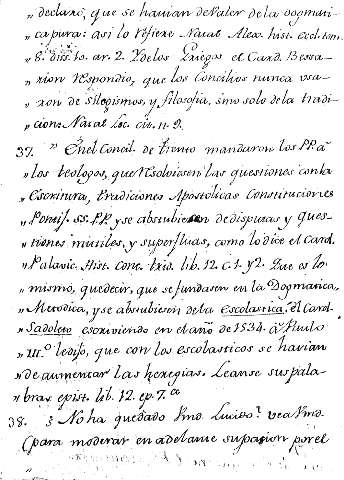 „ declaró, que se havian de valer de la dogmati-
„ ca pura: asi lo refiere Natal Alex. hist. eccl. tom.
„ 8. dis. 10. ar. 2. Y de los Griegos el Card. Bessa-
„ rion respondio, que los Concilios nunca usa-
„ ron de silogismos y filosofia, sino solo de la tradi-
„ cion: Natal loc. cit. n. 9.
37. " En el Concil. de trento mandaron los PP. a
„ los teologos, que resolviesen las questiones con la
„ escritura, tradiciones Apostolicas Constituciones
„ Ponif. SS. PP. y se abstubiesen de disputas y ques-
„ tiones inutiles, y superfluas, como lo dice el Card.
„ Palavic. Hist. Conc. trid. lib. 12. c. 1. y 2. Que es lo
„ mismo, que decir, que se fundasen en la Dogmatica,
„ Metodica, y se abstubiesen de la escolastica. el Card.
„ Sadoleto escriviendo en el año de 1534. á Paulo
„ III.º le dijo, que con los escolasticos se havian
„ de aumentar las heregias. Leanse sus pala-
„ bras epist. lib. 12. ep. 7.ª
38. § No ha quedado Vmd. Lucido? vea Vmd.
(para moderar en adelante su pasion por el